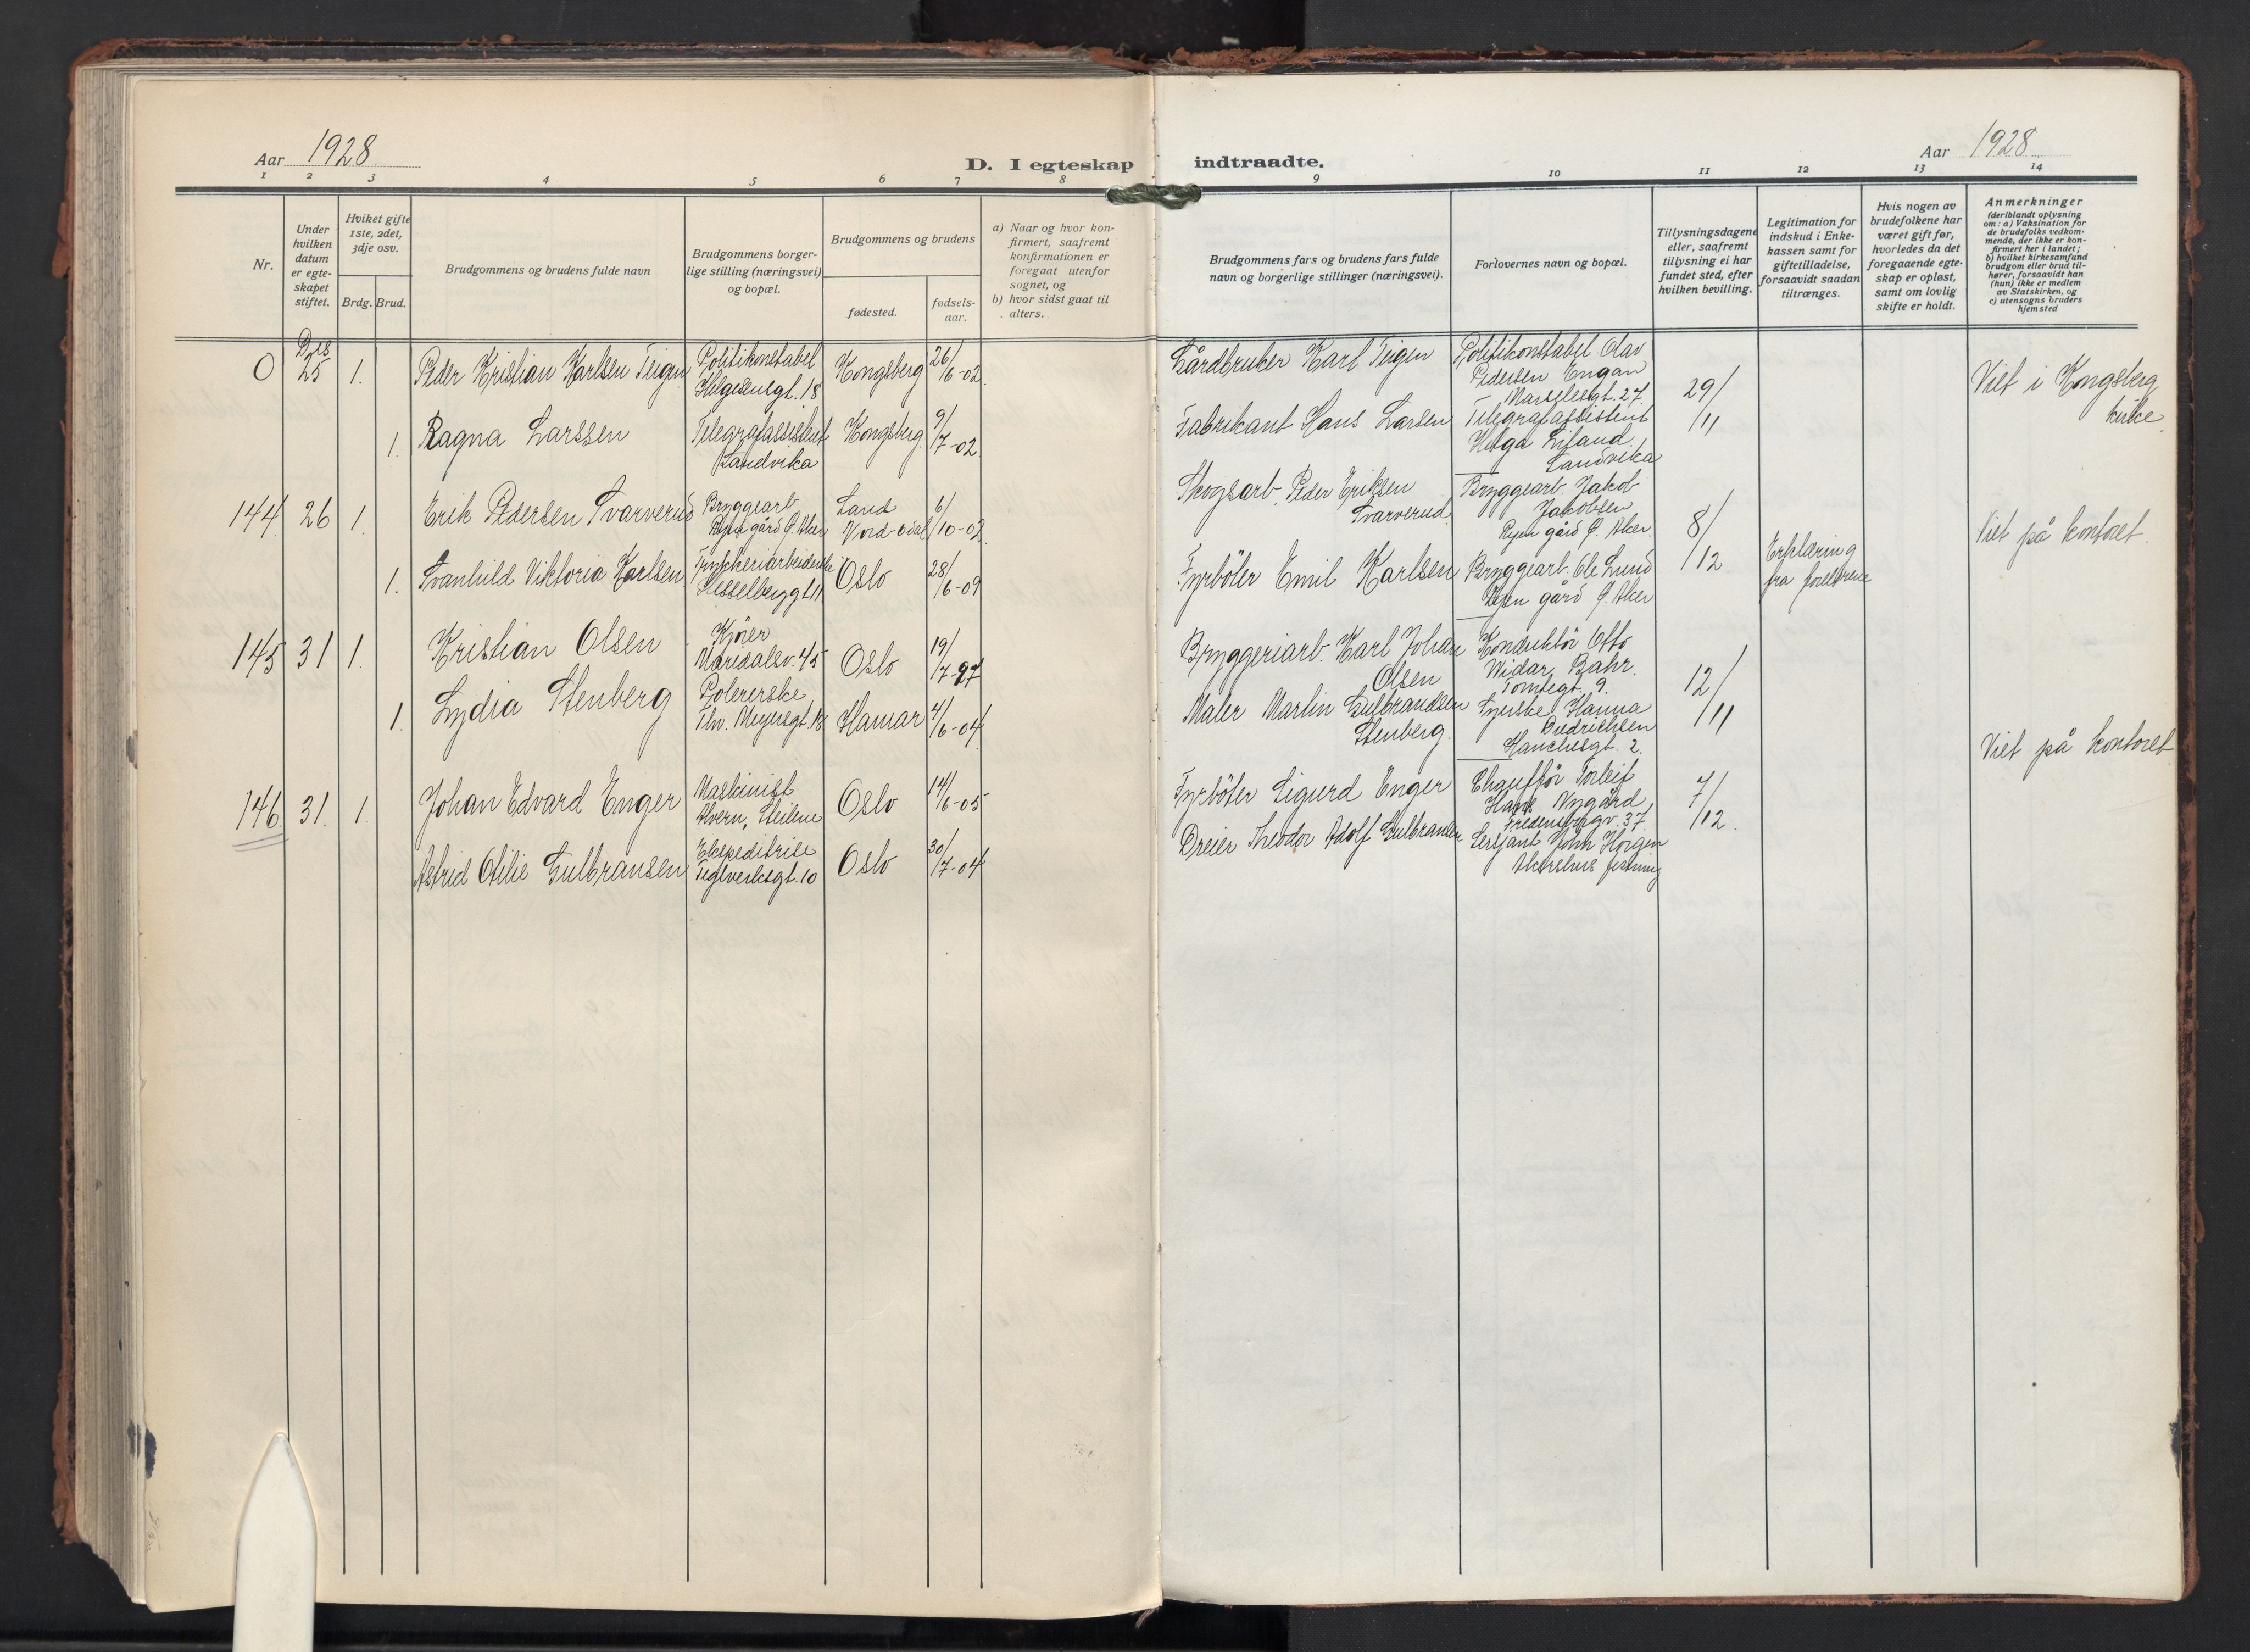 Aar 1928
D. I egteskap
indtraadte.
Aar 1928
1 2 3 4 5 6 7 8
9 10 11 12 13 14
Nr.
Under
hvilken
datum
er egte-
skapet
stiftet.
Hviket gifte
1ste, 2det,
3dje osv.
Brdg. Brud.
Brudgommens og brudens fulde navn
Brudgommens borger-
lige stilling (næringsvei)
og bopæl.
Brudgommens og brudens
fødested.
fødsels-
aar.
a) Naar og hvor kon-
firmert, saafremt
konfirmationen er
foregaat utenfor
sognet, og
b) hvor sidst gaat til
alters.
Brudgommens fars og brudens fars fulde
navn og borgerlige stillinger (næringsvei).
Forlovernes navn og bopæl.
Tillysningsdagene
eller, saafremt
tillysning ei har
fundet sted, efter
hvilken bevilling.
Legitimation for
indskud i Enke-
kassen samt for
giftetilladelse,
forsaavidt saadan
tiltrænges.
Hvis nogen av
brudefolkene har
været gift før,
hvorledes da det
foregaaende egte-
skap er opløst,
samt om lovlig
skifte er holdt.
Anmerkninger
(deriblandt oplysning
om: a) Vaksination for
de brudefolks vedkom-
mende, der ikke er kon-
firmert her i landet;
b) hvilket kirkesamfund
brudgom eller brud til-
hører, forsaavidt han
(hun) ikke er medlem
av Statskirken, og
c) utensogns bruders
hjemsted
0
Des
25
1.
Peder Kristian Karlsen Teigen
Politikonstabel
Helgesensgt. 18
Kongsberg
26/6-02
Gårdbruker Karl Teigen
Politikonstabel Olav
Pedersen Engan
Marselesgt. 27
29/11
Viet i Kongsberg
kirke.
1.
Ragna Larssen
Telegrafassistent
Sandvika
Kongsberg.
9/7-02.
Fabrikant Hans Larsen
Telegrafassistent
Helga Eiland,
Sandvika
144. 26 1.
Erik Pedersen Tvarverud
Bryggearb
Ryen gård Ø. Aker
Sand
Nord-Odal
6/10-02.
Skogsarb. Peder Eriksen
Tvarverud
Bryggearb. Jakob
Jakobsen
Ryen gård Ø. Aker.
8/12
Viet på kontoret.
1.
Svanhild Viktoria Karlsen
Trykkeriarbeiderske
Hesselberggt. 11
Oslo
28/6-09
Fyrböter Emil Karlsen
Bryggearb. Ole Lund
Ryen gård Ø. Aker
Erklæring
fra foreldrene
145 31 1.
Kristian Olsen
Kjörer
Maridalsv. 45
Oslo
19/7-97
Bryggeriarb. Karl Johan
Olsen
Konduktör Otto
Widar Bahr.
Tomtegt. 9.
12/11
1.
Lydia Stenberg
Polererske
Thv. Meyersgt. 18
Hamar
4/6-04
Maler Martin Gulbrandsen
Stenberg.
Syerske Hanna
Diedrichsen
Hauchesgt. 2.
Viet på kontoret
146. 31. 1.
Johan Edvard Enger
Maskinist
Alvern, Steilene
Oslo
14/6-05
Fyrböter Sigurd Enger
Chaufför Torleif
Hans Nygård,
Fredensborgv. 37.
7/12.
Astrid Otilie Gulbransen
Ekspeditrise
Teglverksgt. 10
Oslo
30/7-04
Dreier Theodor Adolf Gulbransen
Sersjant John Horgen
Akershus festning